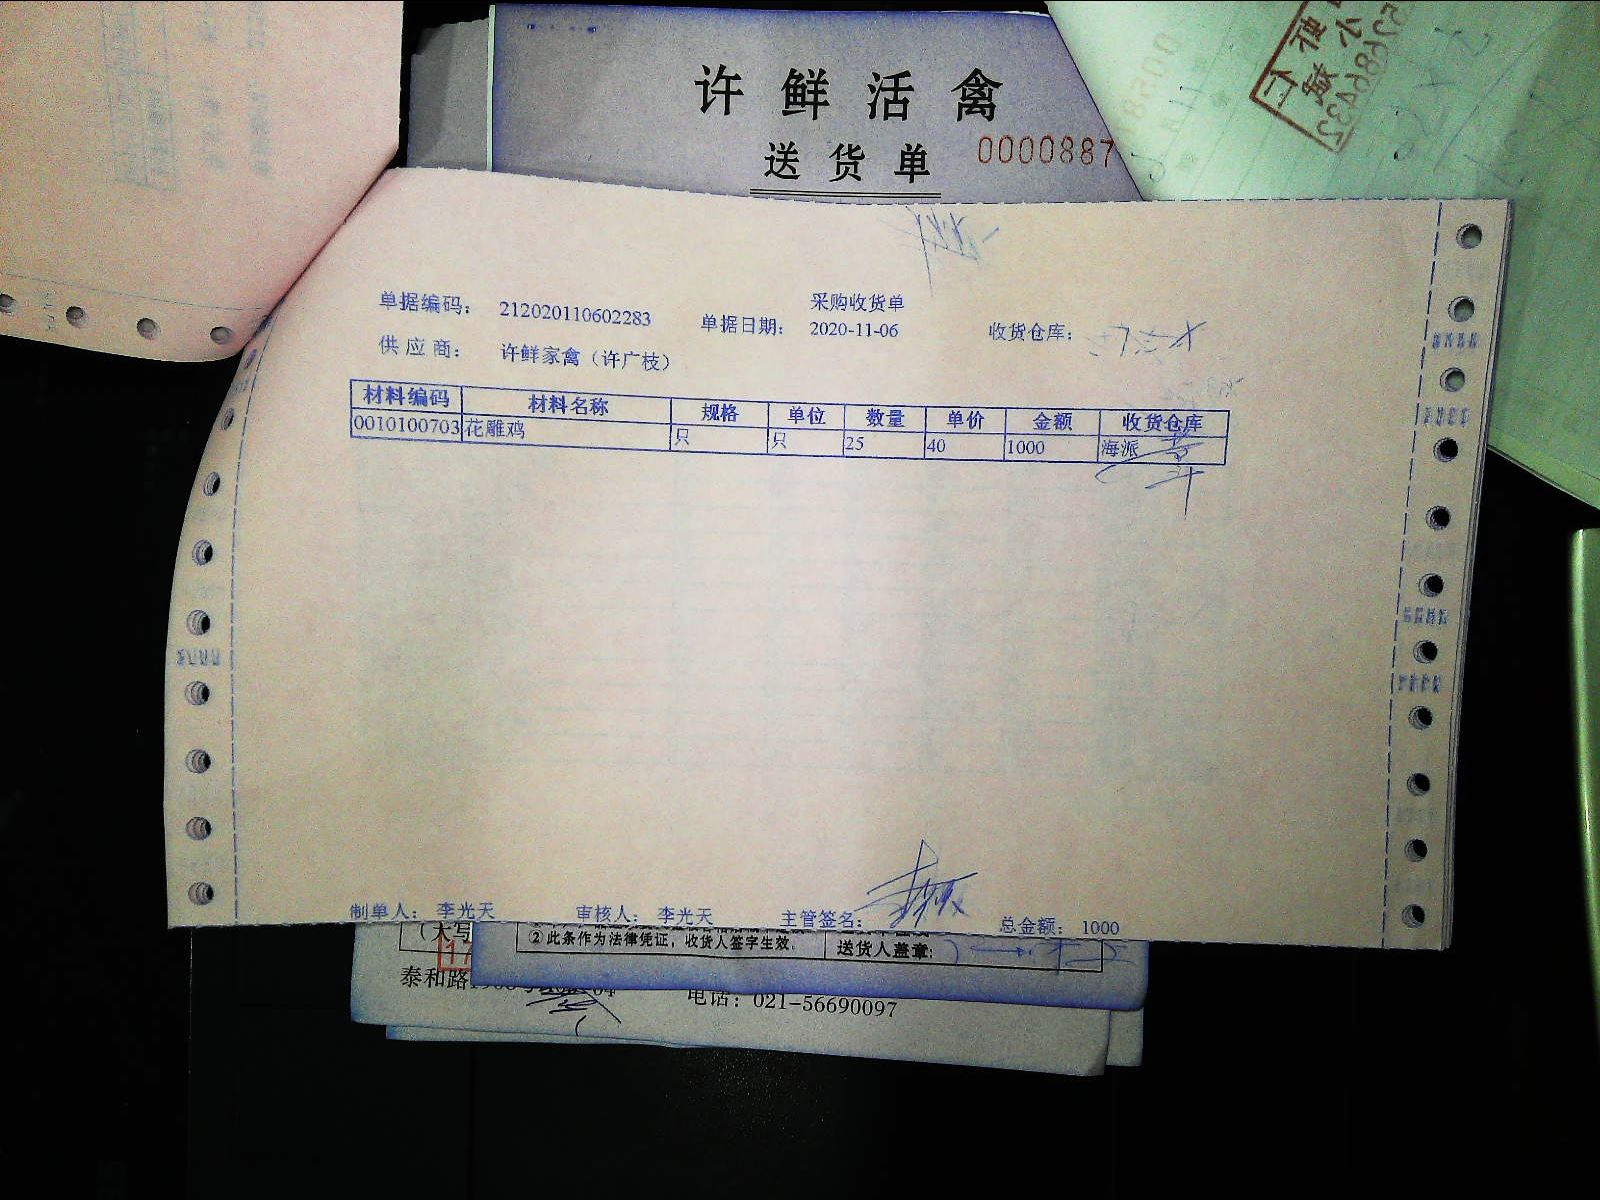 许鲜活禽
送货单 0000887
采购收货单
单据编码: 212020110602283 单据日期: 2020-11-06 收货仓库:
供应商: 许鲜家禽（许广枝）
材料编码 材料名称 规格 单位 数量 单价 金额 收货仓库
0010100703 花雕鸡 只 只 25 40 1000 海派
制单人: 李光天 审核人: 李光天 主管签名: 总金额: 1000
（大写
②此条作为法律凭证，收货人签字生效。 送货人盖章:
泰和路 电话: 021-56690097